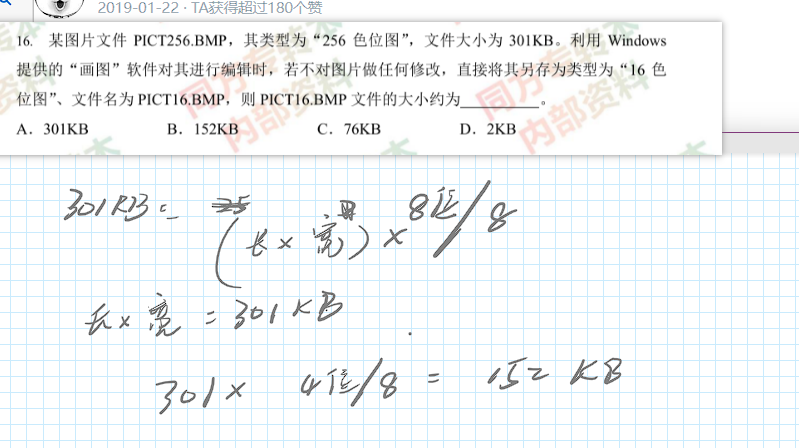 2019-01-22 · TA获得超过180个赞
16. 某图片文件 PICT256.BMP，其类型为“256 色位图”，文件大小为 301KB。利用 Windows
提供的“画图”软件对其进行编辑时，若不对图片做任何修改，直接将其另存为类型为“16 色
位图”、文件名为 PICT16.BMP，则 PICT16.BMP 文件的大小约为__________。
A．301KB B．152KB C．76KB D．2KB
同方专本
内部资料
同方专本
内部资料
301KB =
(长 × 宽) × 8位/8
长 × 宽 = 301 KB
301 × 4位/8 = 152 KB